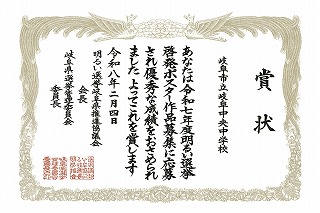 賞状
岐阜市立岐阜中央中学校
あなたは令和七年度明るい選挙
啓発ポスター作品募集に応募
され優秀な成績をおさめられ
ました よってこれを賞します
令和八年二月四日
明るい選挙岐阜県推進協議会
会長
岐阜県選挙管理委員会
委員長